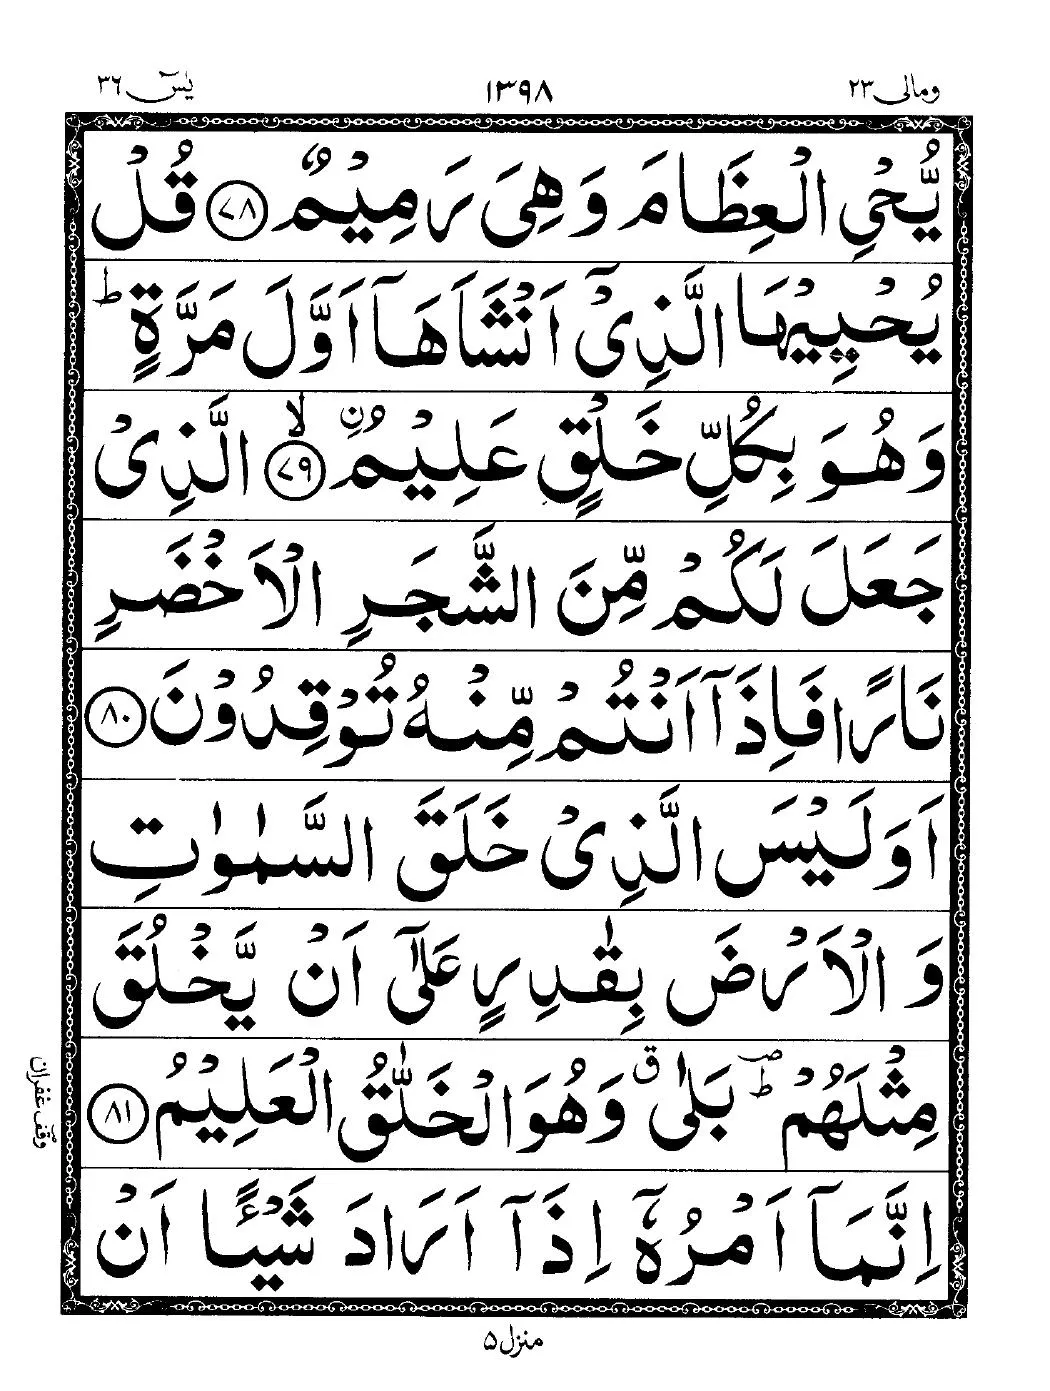 ومالی ۲۳ ۱۳۹۸ یٰسٓ ۳۶
یُّحْیِ الْعِظَامَ وَهِیَ رَمِیْمٌ ﴿۷۸﴾ قُلْ
یُحْیِیْهَا الَّذِیْۤ اَنْشَاَهَاۤ اَوَّلَ مَرَّةٍ ؕ
وَهُوَ بِكُلِّ خَلْقٍ عَلِیْمُ ۨ ۙ﴿۷۹﴾ الَّذِیْ
جَعَلَ لَكُمْ مِّنَ الشَّجَرِ الْاَخْضَرِ
نَارًا فَاِذَاۤ اَنْتُمْ مِّنْهُ تُوْقِدُوْنَ ﴿۸۰﴾
اَوَلَیْسَ الَّذِیْ خَلَقَ السَّمٰوٰتِ
وَ الْاَرْضَ بِقٰدِرٍ عَلٰۤی اَنْ یَّخْلُقَ
مِثْلَهُمْ ؕ ص بَلٰی ق وَهُوَ الْخَلّٰقُ الْعَلِیْمُ ﴿۸۱﴾
وقف غفران
اِنَّمَاۤ اَمْرُهٗۤ اِذَاۤ اَرَادَ شَیْـًٔا اَنْ
منزل ۵